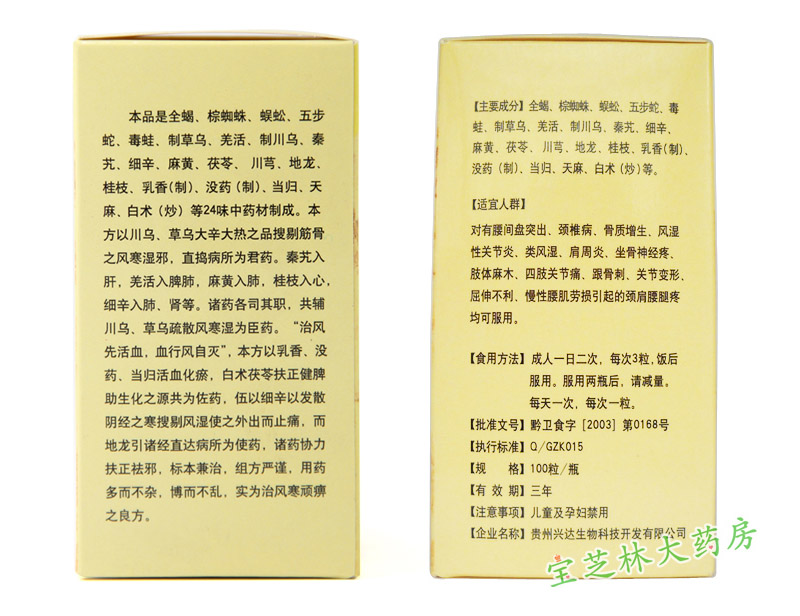 本品是全蝎、棕蜘蛛、蜈蚣、五步
蛇、毒蛙、制草乌、羌活、制川乌、秦
艽、细辛、麻黄、茯苓、川芎、地龙、
桂枝、乳香(制)、没药(制)、当归、天
麻、白术(炒)等24味中药材制成。本
方以川乌、草乌大辛大热之品搜剔筋骨
之风寒湿邪，直捣病所为君药。秦艽入
肝，羌活入脾肺，麻黄入肺，桂枝入心，
细辛入肺、肾等。诸药各司其职，共辅
川乌、草乌疏散风寒湿为臣药。“治风
先活血，血行风自灭”，本方以乳香、没
药、当归活血化瘀，白术茯苓扶正健脾
助生化之源共为佐药，伍以细辛以发散
阴经之寒搜剔风湿使之外出而止痛，而
地龙引诸经直达病所为使药，诸药协力
扶正祛邪，标本兼治，组方严谨，用药
多而不杂，博而不乱，实为治风寒顽痹
之良方。
【主要成分】全蝎、棕蜘蛛、蜈蚣、五步蛇、毒
蛙、制草乌、羌活、制川乌、秦艽、细辛、
麻黄、茯苓、川芎、地龙、桂枝、乳香(制)、
没药(制)、当归、天麻、白术(炒)等。
【适宜人群】
对有腰间盘突出、颈椎病、骨质增生、风湿
性关节炎、类风湿、肩周炎、坐骨神经疼、
肢体麻木、四肢关节痛、跟骨刺、关节变形、
屈伸不利、慢性腰肌劳损引起的颈肩腰腿疼
均可服用。
【食用方法】成人一日二次，每次3粒，饭后
服用。服用两瓶后，请减量。
每天一次，每次一粒。
【批准文号】黔卫食字[2003]第0168号
【执行标准】Q/GZK015
【规 格】100粒/瓶
【有 效 期】三年
【注意事项】儿童及孕妇禁用
【企业名称】贵州兴达生物科技开发有限公司
宝芝林大药房